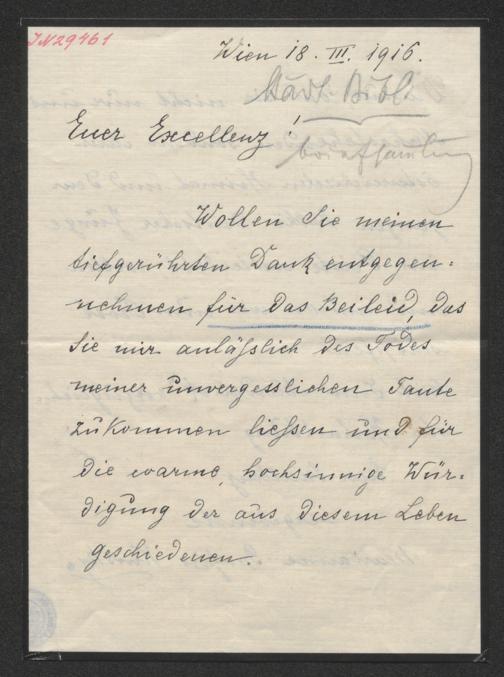 IN 29461
Wien 18. III. 1916.
Städt Bibl
Euer Excellenz!
briefsammlung
Wollen Sie meinen
tiefgerührten Dank entgegen=
nehmen für das Beileid, das
Sie mir anläßlich des Todes
meiner unvergesslichen Tante
zukommen liessen und für
die warme, hochsinnige Wür=
digung der aus diesem Leben
geschiedenen.